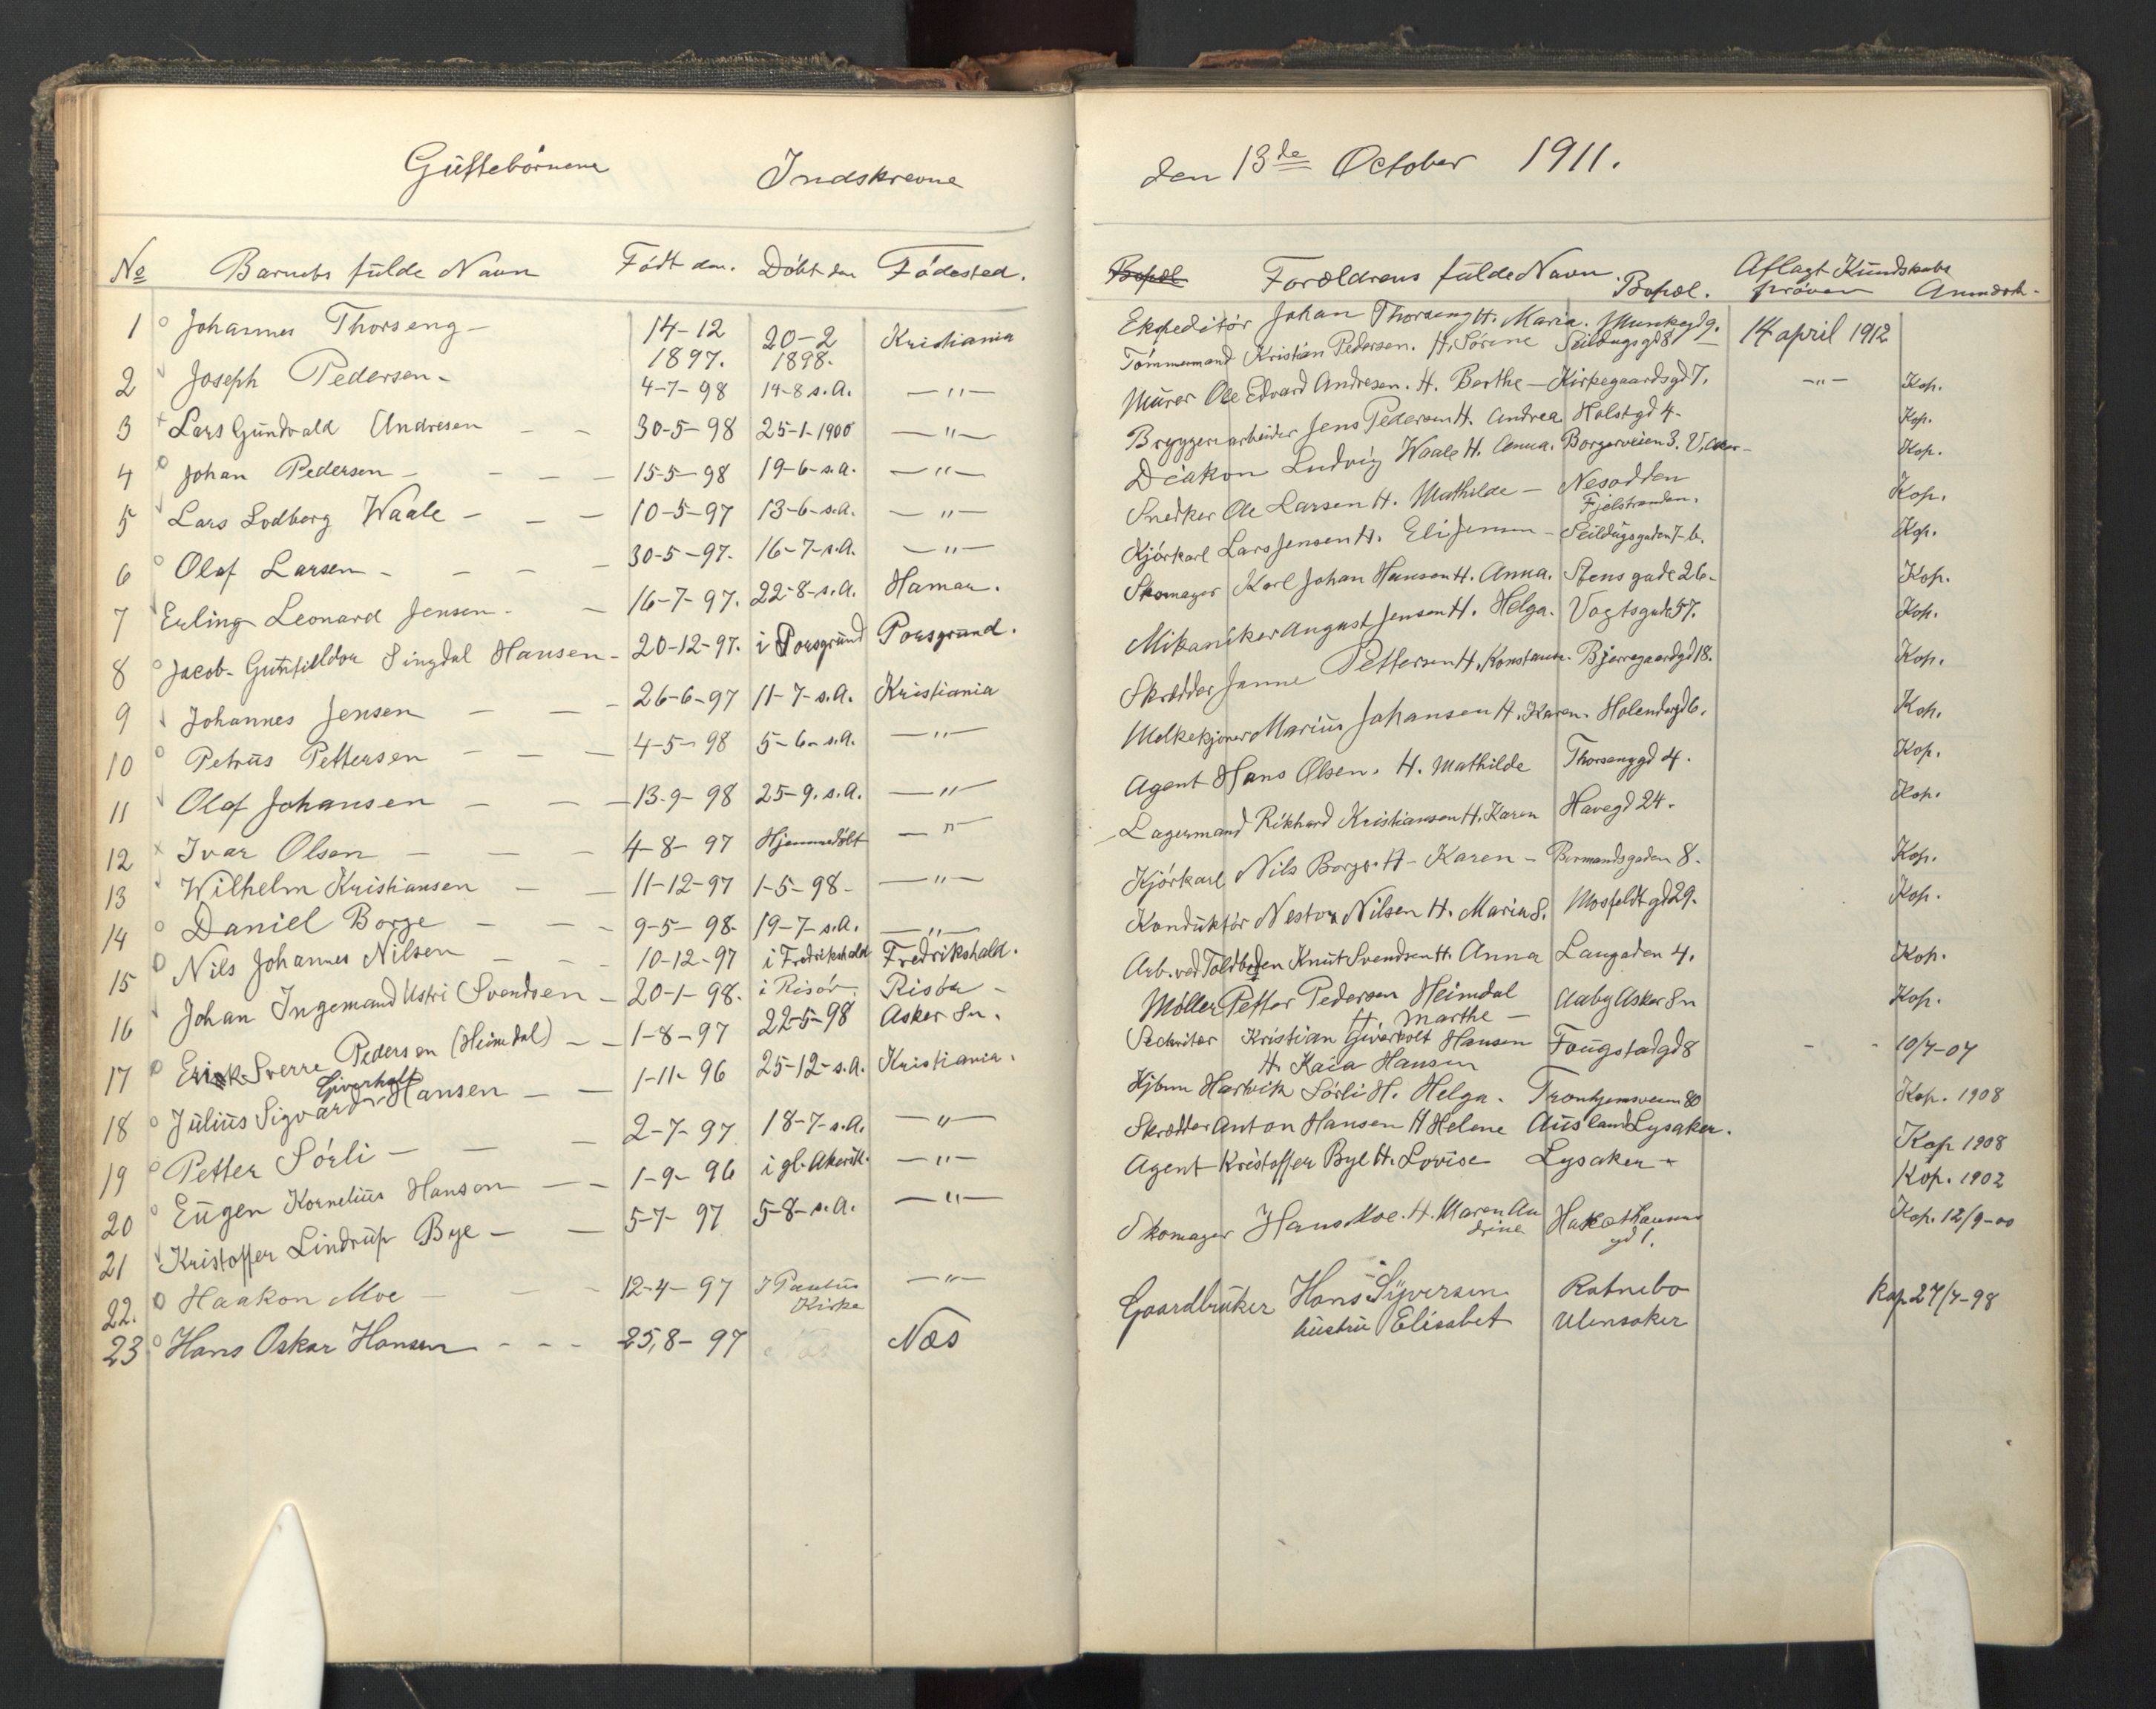 Guttebörnene Indskrevne
No Barnets fulde Navn Födt den. Döbt den Födested.
1 Johannes Thorseng - 14-12 1897. 20-2 1898. Kristiania
2 Joseph Pedersen - 4-7-98 14-8 s.A. —"—
3 Lars Gundvald Andresen - - 30-5-98 25-1-1900 —"—
4 Johan Pedersen - - - - 15-5-98 19-6-s.a. —"—
5 Lars Lodberg Waale - - - 10-5-97 13-6-s.a. —"—
6 Olaf Larsen - - - - 30-5-97. 16-7-s.A. —"—
7 Erling Leonard Jensen - - 16-7-97. 22-8-s.A. Hamar.
8 Jacob Singdal Hansen - 20-12-97. i Porsgrund Porsgrund.
9 Johannes Jensen - - - 26-6-97 11-7-s.A. Kristiania
10 Petrus Pettersen - - - 4-5-98 5-6-s.A. —"—
11 Olaf Johansen - - - 13-9-98 25-9. s.A. —"—
12 Ivar Olsen - - - 4-8-97 Hjemmedöbt —"—
13 Wilhelm Kristiansen - - 11-12-97 1-5-98- —"—
14 Daniel Borge - - - 9-5-98- 19-7-s.A. —"—
15 Nils Johannes Nilsen - - - 10-12-97 i Fredrikshald Fredrikshald.
16 Johan Ingemand Ustri Svendsen - 20-1-98. i Risör Risör -
17 Erik Sverre Pedersen (Heimdal) - - 1-8-97 22-5-98 Asker Sn.
Giverholt
18 Julius Sigvard Hansen - - 1-11-96 25-12-s.A. Kristiania.
19 Petter Sörli - - - 2-7-97 18-7-s.A. —"—
20 Eugen Kornelius Hanson - - 1-9-96 i gl. Akerkk. —"—
21 Kristoffer Lindrup Bye - - 5-7-97 5-8-s.A. —"—
22. Haakon Moe - - - 12-4-97 I Paulus Kirke —"—
23 Hans Oskar Hansen - - - 25,8-97 Næs
den 13de October 1911.
Bopæl Forældrens fulde Navn. Bopæl. Aflagt Kundskabs pröven Anmærk-
Ekspeditör Johan Thorseng H. Maria. Munkegd 9. 14 april 1912
Tömmermand Kristian Pedersen. H. Sörine Seildugsgd 8 —"— Kop.
Murer Ole Edvard Andresen. H. Berthe - Kirkegaardsgd 7. Kop.
Bryggeriarbeider Jens Pedersen H. Andrea Holstgd 4- Kop.
Diakon Ludvig Waale H. Anna. Borgerveien 3. V. Aker- Kop.
Snedker Ole Larsen H. Mathilde - Nesodden Fjelstranden. Kop.
Kjörkarl Lars Jensen H. Eli Jensen - Seildugsgaden 7-b. Kop.
Skomager Karl Johan Hansen H. Anna. Stensgade 26- Kop.
Mikaniker August Jensen H. Helga. Vogtsgade 57. Kop.
Skrædder Janne Pettersen H. Konstanse. Bjerregaardgd 18. Kop.
Melkekjörer Marius Johansen H. Karen. Holendergd 6. Kop.
Agent Hans Olsen. H. Mathilde Thorsenggd 4. Kop.
Lagermand Rikhard Kristiansen H. Karen Havegd 24. Kop.
Kjörkarl Nils Borge. H- Karen - Bermandsgaden 8. Kop.
Konduktör Nestor Nilsen H. Maria S. Mosfeldtgd 29. Kop.
Arb. ved Toldboden Knut Svendsen H. Anna Langaden 4. Kop.
Möller Petter Pedersen Heimdal H. Marthe - Aaby Asker Sn Kop.
Sekritær Kristian Giverholt Hansen H. Kaia Hansen Fougstadgd 8 - - 10/7-07
Hjbmn Hartvik Sörli H. Helga. Trontjemsveien 80 Kop. 1908
Skrædder Anton Hansen H Helene Ausland Lysaker. Kop 1908
Agent Kristoffer Bye H. Lovise Lysaker - Kop. 1902
Skomager Hans Moe. H. Maren Andrine gd 1. Kop. 12/9-00
Gaardbruker Hans Syversen Ratnebo Kop 27/7-98
hustru Elisabet Ulensaker